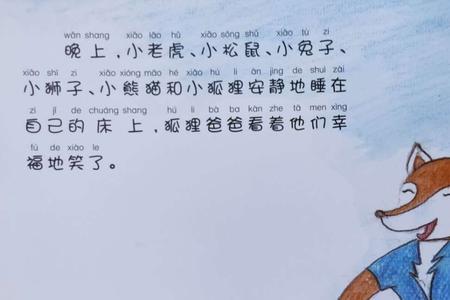 wǎn shang xiǎo lǎo hǔ xiǎo sōng shǔ xiǎo tù zi
晚上,小老虎、小松鼠、小兔子、
xiǎo shī zi xiǎo xióng māo hé xiǎo hú li ān jìng de shuì zài
小狮子、小熊猫和小狐狸安静地睡在
zì jǐ de chuáng shang hú li bà ba kàn zhe tā men xìng
自己的床上,狐狸爸爸看着他们幸
fú de xiào le
福地笑了。